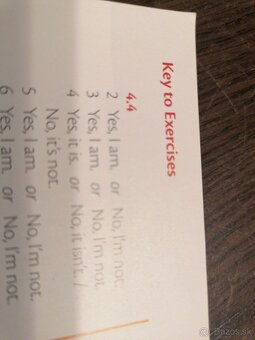 Key to Exercises
4.4
2 Yes, I am. or No, I'm not.
3 Yes, I am. or No, I'm not.
4 Yes, it is. or No, it isn't. /
No, it's not.
5 Yes, I am. or No, I'm not.
6 Yes, I am. or No, I'm not.
Bazos.sk